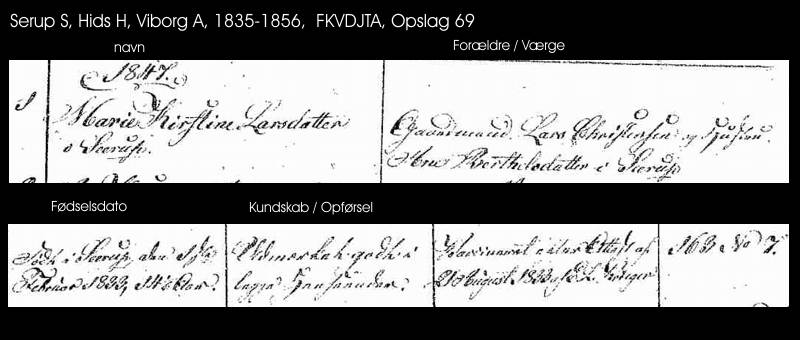 Serup S, Hids H, Viborg A, 1835-1856, FKVDJTA, Opslag 69
navn
Forældre / Værge
1847.
1
Marie Kirstine Larsdatter
Gaardmand Lars Christensen og Hustru
i Seerup.
Ane Berthelsdatter i Seerup
Fødselsdato
Kundskab / Opførsel
Født i Seerup, den
Udmærket godt i
Vaccineret efter Attest af
163 No 7.
Februar 1833, 14½ Aar.
begge Henseender.
21 August 1833 af L. Krieger